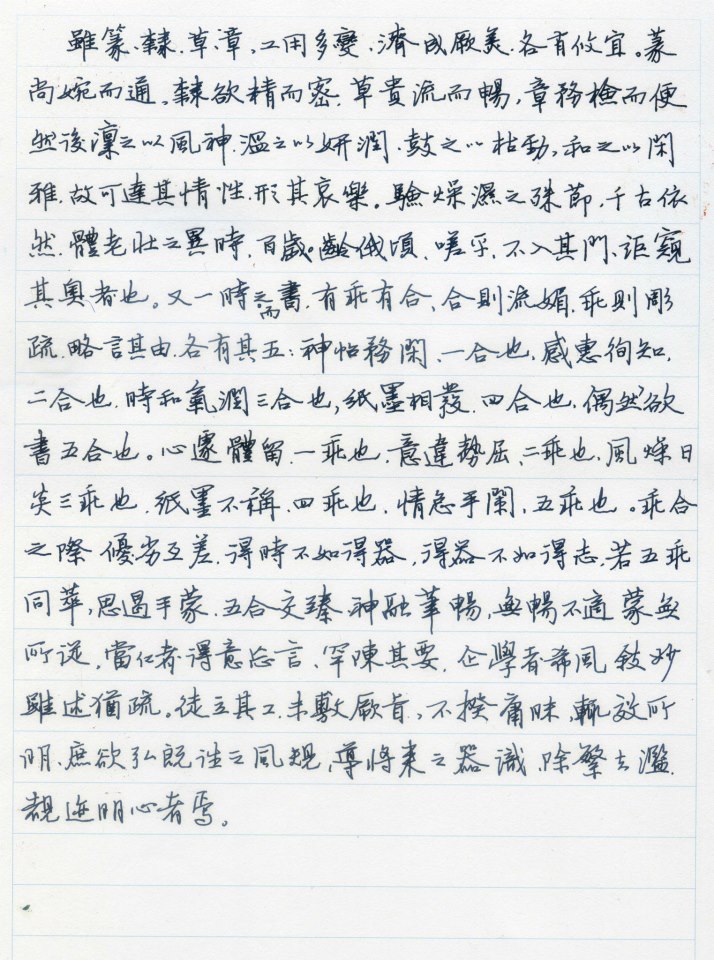 雖篆、隸、草、章,工用多變,濟成厥美,各有攸宜。篆
尚婉而通。隸欲精而密,草貴流而暢,章務檢而便
然後凜之以風神,溫之以妍潤,鼓之以枯勁,和之以閑
雅,故可達其情性,形其哀樂。驗燥濕之殊節,千古依
然,體老壯之異時,百齡俄頃,嗟乎,不入其門,詎窺
其奧者也。又一時而書,有乖有合,合則流媚,乖則彫
疏,略言其由,各有其五:神怡務閑,一合也,感惠徇知,
二合也,時和氣潤三合也,紙墨相發,四合也,偶然欲
書五合也。心遽體留,一乖也,意違勢屈,二乖也,風燥日
炎三乖也,紙墨不稱,四乖也,情怠手闌,五乖也。乖合
之際 優劣互差,得時不如得器,得器不如得志,若五乖
同萃,思遏手蒙,五合交臻 神融筆暢,無暢不適 蒙無
所從,當仁者得意忘言,罕陳其要,企學者希風敘妙
雖述猶疏。徒立其工,未敷厥旨,不揆庸昧,輒效所
明,庶欲弘既往之風規,導將來之器識,除繁去濫,
覩迹明心者焉。